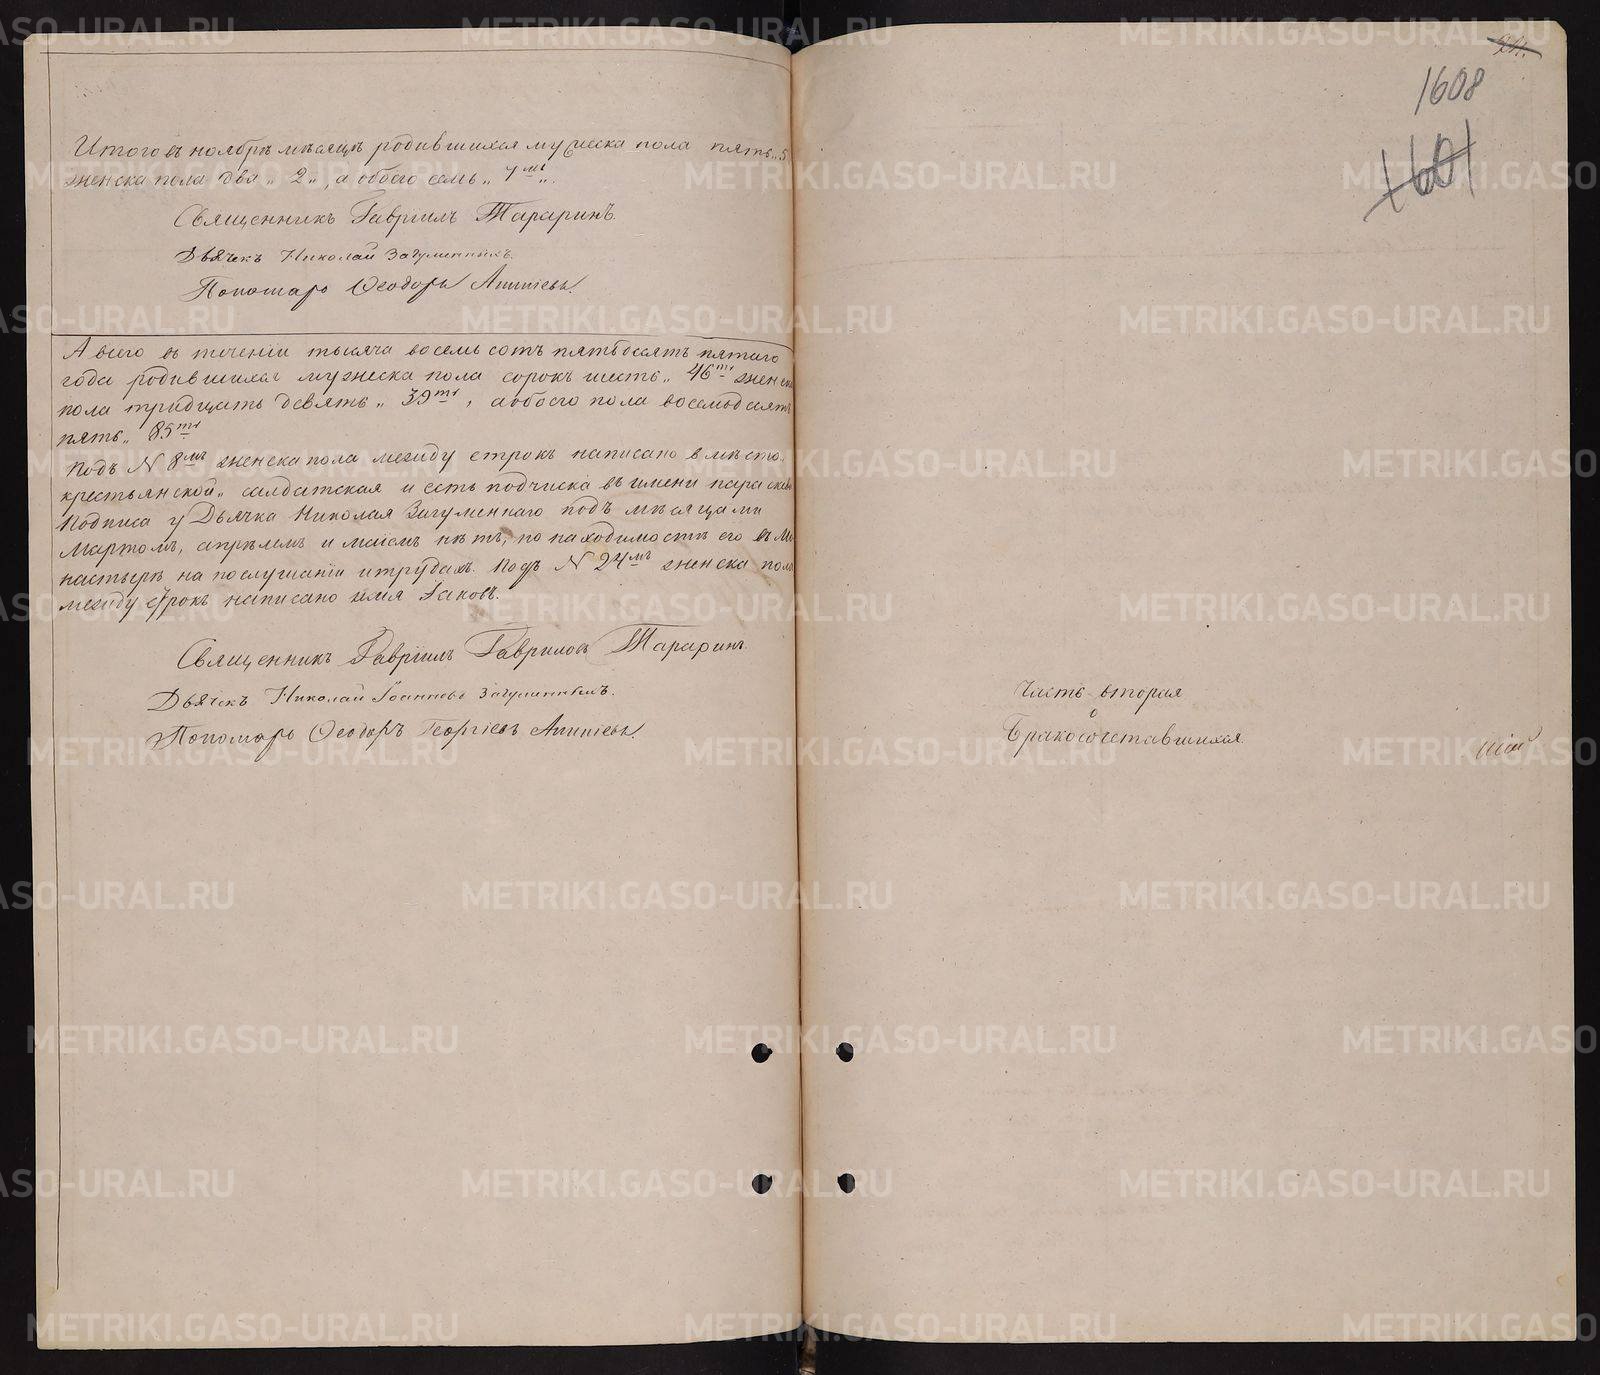 Итого въ ноябрѣ мѣсяцѣ родившихся мужеска пола пять „5
женска пола два „ 2 „, а обоего семь „ 7мъ „.
Священникъ Гавріилъ Тараринъ.
Дьячекъ Николай Загуменныхъ.
Пономарь Ѳеодоръ
А всего въ теченіи тысяча восемь сотъ пятьдесятъ пятаго
года родившихся мужеска пола сорокъ шесть „ 46ть женска
пола тридцать девять „ 39ть, а обоего пола восемьдесятъ
пять „ 85ть
Подъ № 8мъ женска пола между строкъ написано вмѣсто
крестьянской „ салдатская и есть подчиска въ имени
Подписа у Дьячка Николая Загуменнаго подъ мѣсяцами
Мартомъ, апрѣлемъ и маіемъ нѣтъ, по находимостѣ его въ Мо
настырѣ на послушаніи и трудахъ. Подъ № 24мъ женска пола
между строкъ написано имя Іаковъ.
Священникъ Гавріилъ Гавриловъ Тараринъ.
Дьячекъ Николай Іоанновъ Загуменныхъ.
Пономарь Ѳеодоръ Георгіевъ
1608
1601
Часть вторая
о
Бракосочетавшихся.
METRIKI.GASO-URAL.RU